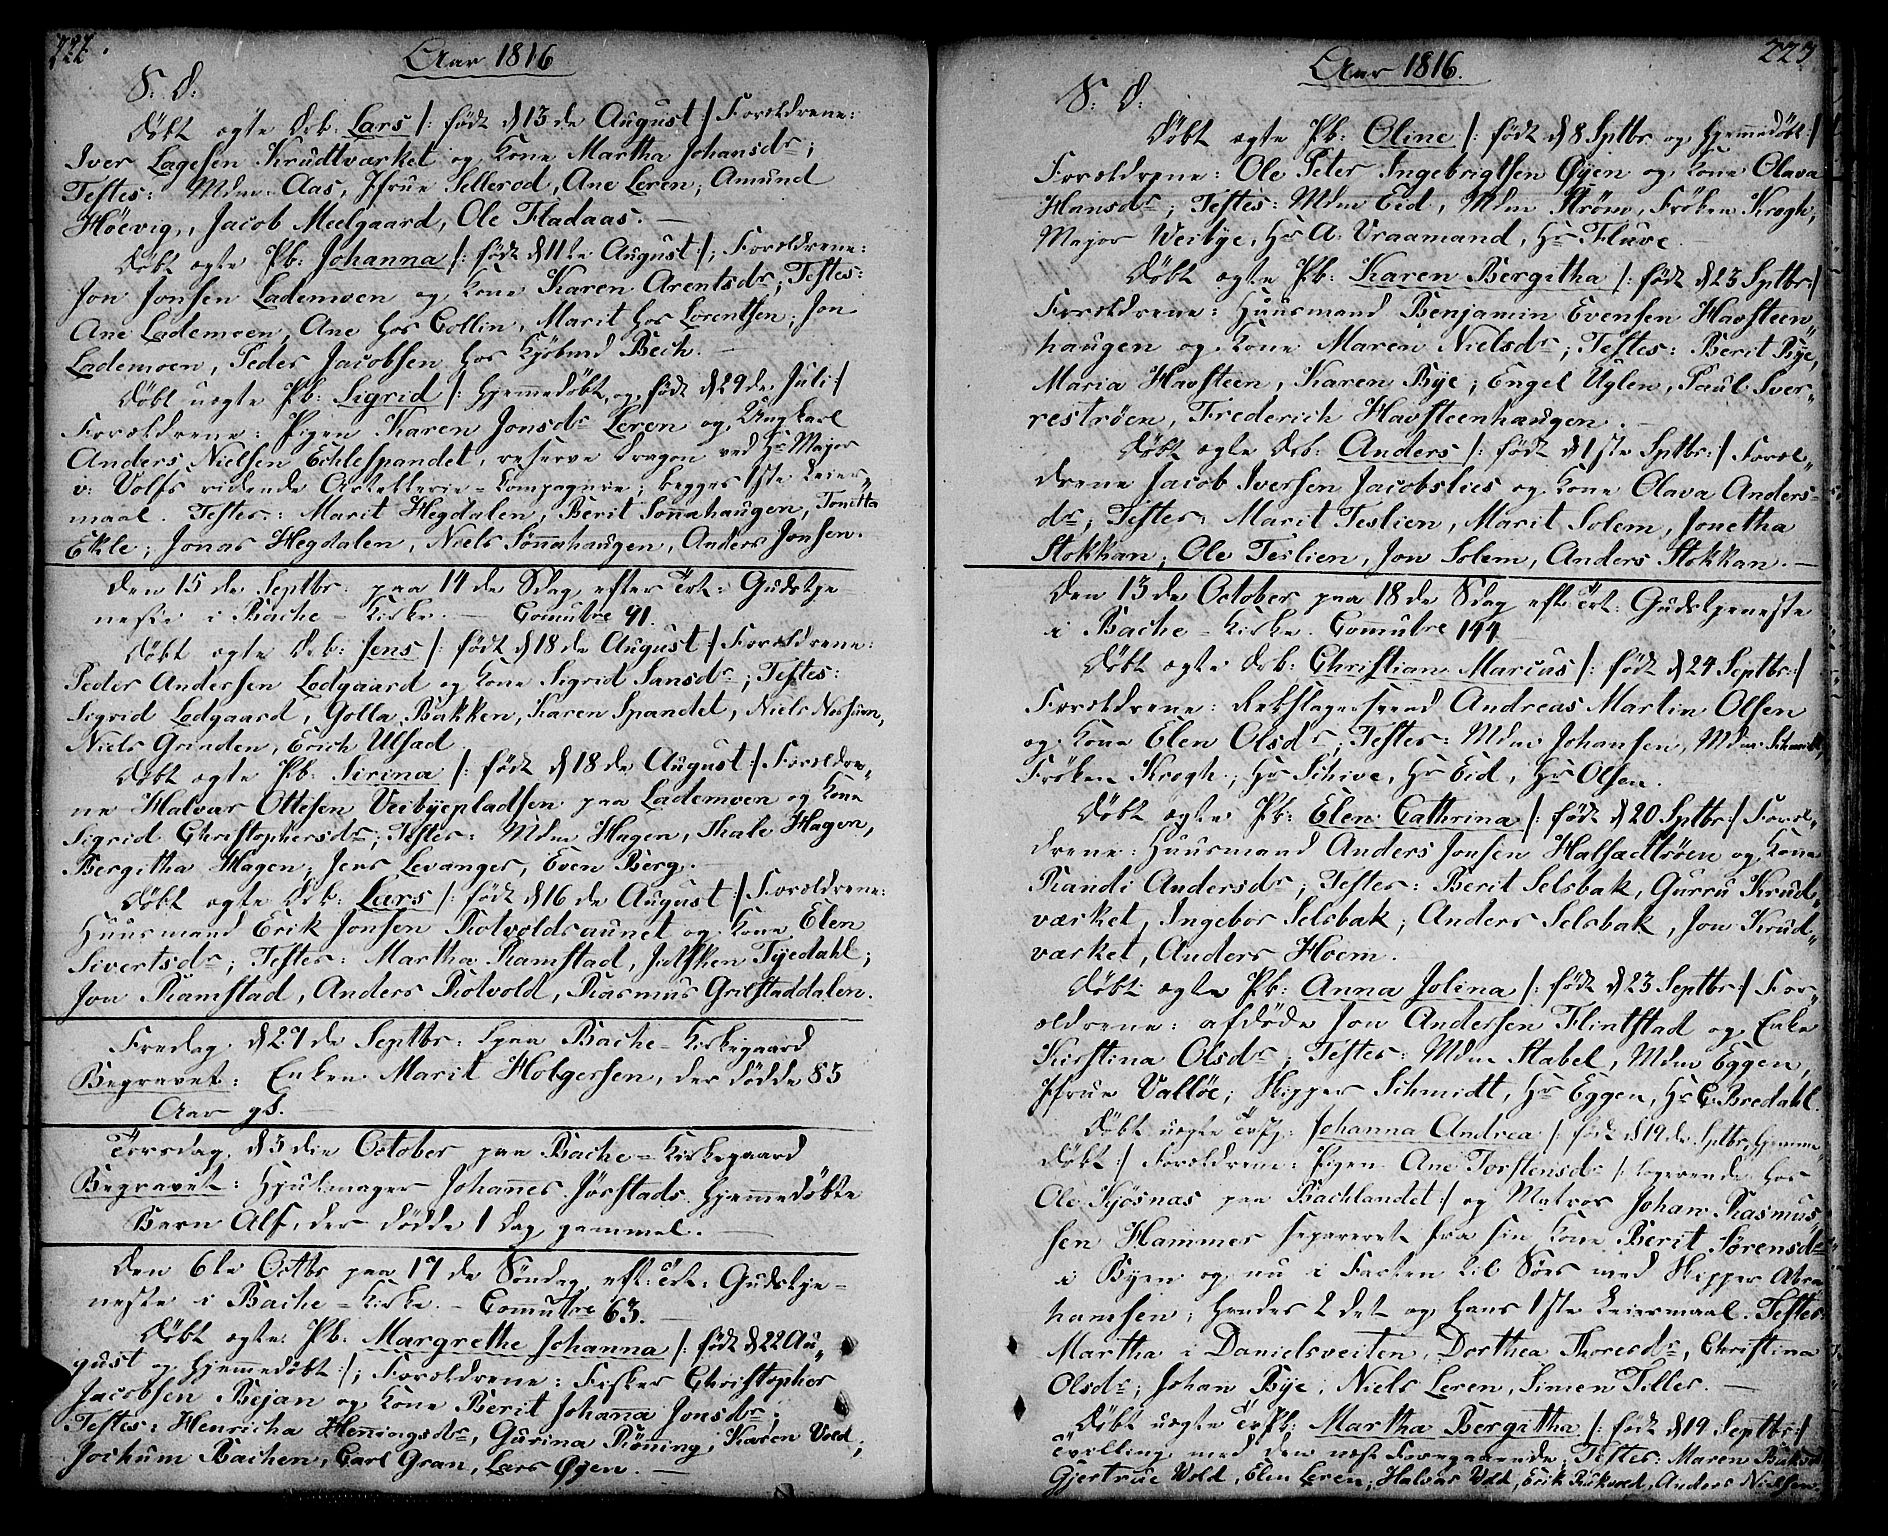 222.
Aar 1816
S: D:
Døbt ægte Drb: Lars /: født d 13de August :/ Forældrene:
Iver Lagesen Krudtværket og Kone Martha Johansdr;
Testes: Mdm: Aas, Jfrue Sellerod, Ane Leren; Amund
Høevig, Jacob Meelgaard, Ole Fladaas. —
Døbt ægte Pb: Johanna /: født d 11te August :/; Forældrene:
Jon Jonsen Lademoen og Kone Karen Arentsdr; Testes:
Ane Lademoen, Ane hos Collin, Marit hos Lorentsen; Jon
Lademoen, Peder Jacobsen hos Kjøbmd Bech. —
Døbt uægte Pb: Sigrid /: hjemmedøbt, og født d 29de Juli :/
Forældrene: Pigen Karen Jonsdr Leren og Ungkarl
Anders Nielsen Echlespandet, reserve Dragon ved Hr Major
v: Volfs ridende Artellerie-Compagnie; begges 1ste Leier„
maal. Testes: Marit Hegdalen, Berit Sønnahaugen, Tonetta
Ekle; Jonas Hegdalen, Niels Sønnahaugen, Anders Jonsen.
Den 15de Septbr. paa 14de Sdag efter Trt: Gudstje
neste i Bache-Kirke. — Comubre 91.
Døbt ægte Drb: Jens /: født d 18de August :/ Forældrene:
Peder Andersen Lodgaard og Kone Sigrid Jansdr; Testes:
Sigrid Lodgaard, Golla Bakken, Karen Spandet, Niels
Niels Grinden, Erich Ulsad
Døbt ægte Pb: Sirina /: født d 18de August :/ Forældre„
ne Halvar Ottesen Veibyepladsen paa Lademoen og Kone
Sigrid Christophersdr; Testes: Mdm Hagen, Thale Hagen,
Bergitha Hagen; Jens Levanger, Even Berg. —
Døbt ægte Drb: Lars /: født d 16de August :/ Forældrene:
Huusmand Erik Jonsen Rotvoldsaunet og Kone Elen
Sivertsdr; Testes: Martha Ramstad, Tyedahl;
Jon Ramstad, Anders Rotvold, Rasmus Grilstaddalen.
Fredag d 27de Septbr: paa Bache-Kirkegaard
Begravet: Enken Marit Holgersen, der døde 83
Aar gl. —
Torsdag d 3die October paa Bache-Kirkegaard
Begravet: Hjulmager Johannes Jørstads hjemmedøbte
Barn Alf, der døde 1 Dag gammel. —
Den 6te Octbr paa 17de Søndag eft: Trt: Gudstje-
neste i Bache-Kirke. — Comubre 63. —
Døbt ægte Pb: Margrethe Johanna /: født d 22 Au„
gust og hjemmedøbt :/; Forældrene: Fisker Christopher
Jacobsen Bejan og Kone Berit Johanna Jonsdr;
Testes: Henricha Henningsdr, Gurina Røning, Karen Vold;
Jochum Bachen, Carl Gran, Lars Øyen. —
223
Aar 1816.
S: D:
Døbt ægte Pb: Oline /: født d 8 Sptbr og hjemmedøbt :/
Forældrene: Ole Peter Ingebrigtsen Øyen og Kone Olava
Hansdr; Testes: Mdm Eid, Mdm Strøm, Frøken Krogh;
Major Weibye, Hr A: Vraamand, Hr Fluve. —
Døbt ægte Pb: Karen Bergitha /: født d 23 Sptbr :/
Forældrene: Huusmand Benjamin Evensen Havsteen„
haugen og Kone Maren Nielsdr; Testes: Berit Bye,
Maria Havsteen, Karen Bye; Engel Uglen, Paul Sver„
restrøen, Frederich Havsteenhaugen. —
Døbt ægte Drb: Anders /: født d 1ste Sptbr :/ Foræl„
drene Jacob Iversen Jacobslies og Kone Olava Anders-
dr; Testes: Marit Teslien, Marit Solem, Jonetha
Stokkan; Ole Teslien, Jon Solem, Anders Stokkan. —
Den 13de October paa 18de Sdag eft Trt: Gudstjeneste
i Bache-Kirke. Comubre 144
Døbt ægte Drb: Christian Marcus /: født d 24 Septbr :/
Forældrene: Rebslagersvend Andreas Martin Olsen
og Kone Elen Olsdr, Testes: Mdm Johansen, Mdm
Frøken Krogh; Hr Schive, Hr Eid, Hr Olsen.
Døbt ægte Pb: Elen Cathrina /: født d 20 Sptbr :/ Foræl„
drene: Huusmand Anders Jonsen Halsadtrøen og Kone
Randi Andersdr; Testes: Berit Selsbak, Gurru Krud„
værket, Ingebor Selsbak; Anders Selsbak, Jon Krud„
værket, Anders Hoem.
Døbt ægte Pb: Anna Jolina /: født d 23 Septbr :/ For„
ældrene: afdøde Jon Andersen Flintstad og Enke
Kirstina Olsdr; Testes: Mdm Stabel, Mdm Eggen,
Jfrue Valløe; Skipper Schmidt, Hr Eggen, Hr C: Bredahl.
Døbt uægte Johanna Andrea /: født d 19de Sptbr, hjemme„
døbt :/ Forældrene: Pigen Ane Torstensdr /: logerende hos
Ole Kjøsnas paa Bachlandet :/ og Matros Johan Rasmus„
sen Hammer separeret fra sin Kone Berit Sørensdr
i Byen og nu i Farten til Søes med Skipper Abra„
hamsen; hendes 2det og hans 1ste Leiermaal. Testes:
Martha i Danielsveiten, Dorthea Thoresdr, Christina
Olsdr; Johan Bye, Niels Leren, Simen Tiller. —
Døbt uægte Martha Bergitha /: født d 19 Septbr :/
Tvilling med den næst Foregaaende; Testes: Maren
Gjertrue Vold, Elen Leren; Halvar Vold, Erik Rotvold, Anders Nielsen.